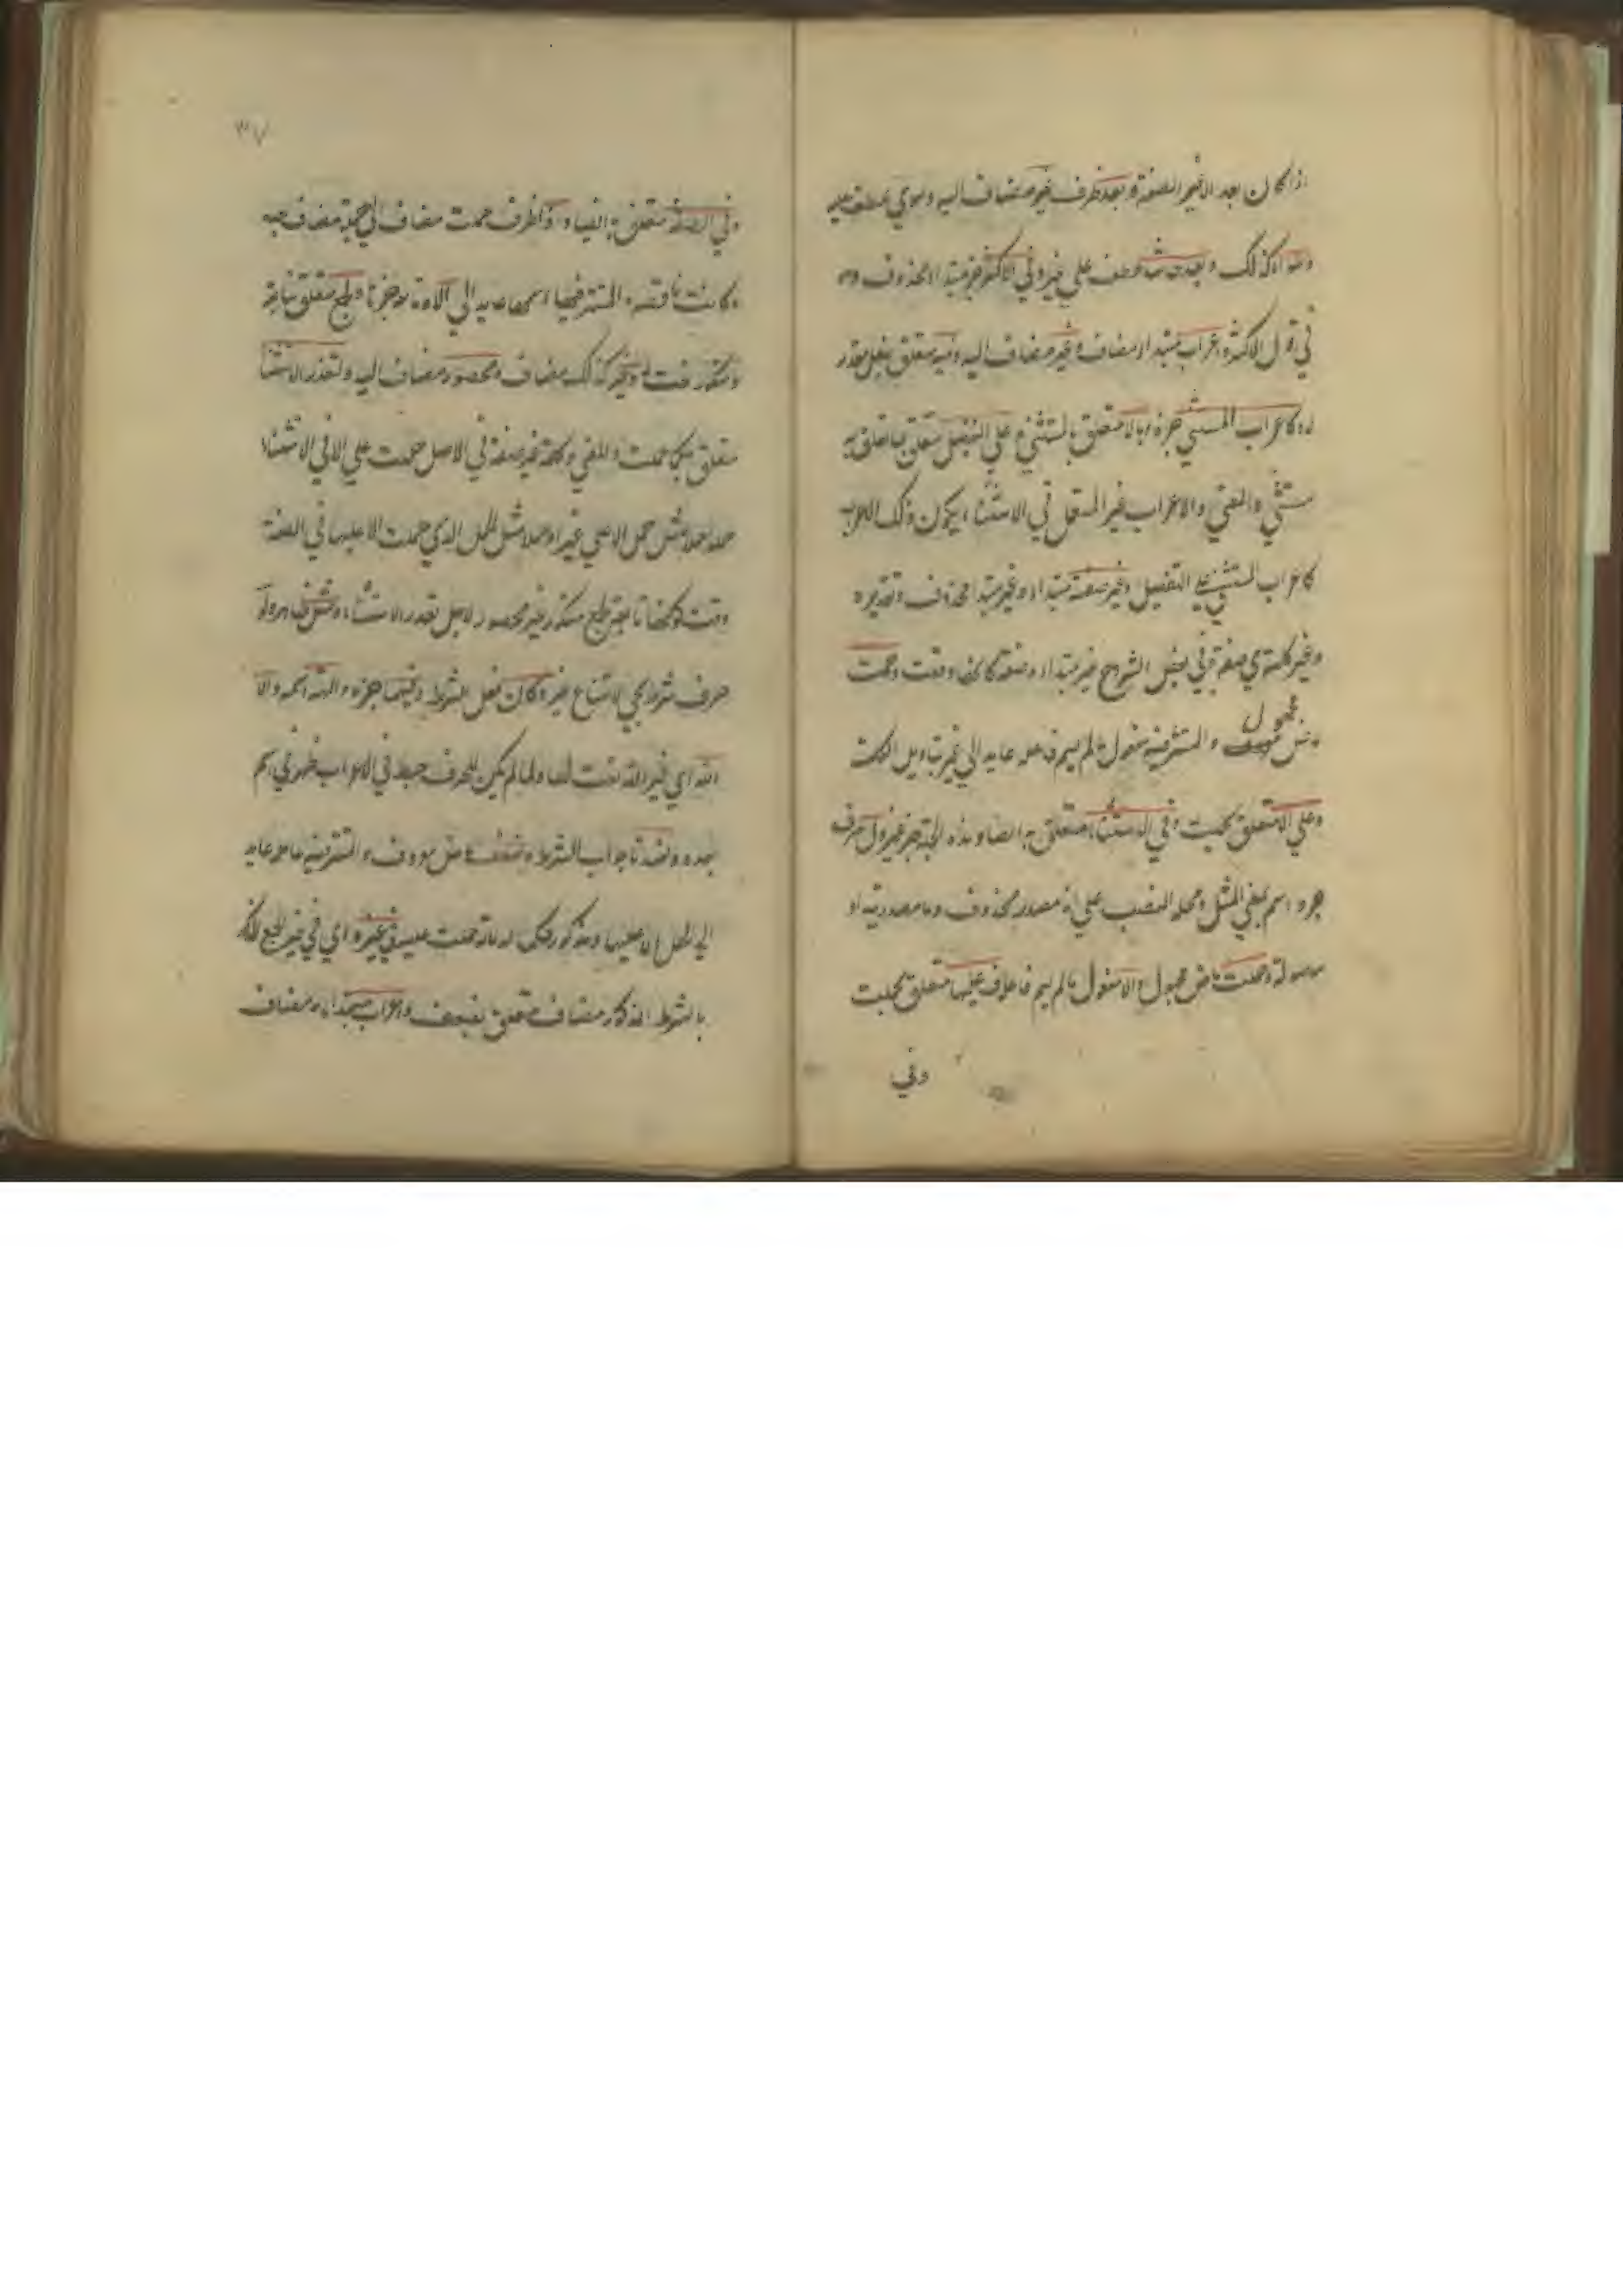 اذا كان بعد الا غير الصفة وبعد ظرف غير مضاف اليه وسوى عطف عليه
وسواء كذلك وبعد حاشا عطف على غير وفي الاكثر خبر مبتدا محذوف
في قول الاكثر واعراب مبتدا مضاف وغير مضاف اليه وفيه متعلق بفعل مقدر
كاعراب المستثنى خبره وبالا متعلق بالمستثنى وعلى التفصيل متعلق بما تعلق به
مستثنى والمعنى والاعراب غير المستعمل في الاستثناء يكون ذلك الاعراب
كاعراب المستثنى على التفصيل وغير صفة مبتدا وغير مبتدا محذوف وتقديره
وغير كلمة هي صفة وفي بعض الشروح غير مبتدا وصفة كائنا وقعت وحملت
ماض مجهول والمستتر فيه مفعول ما لم يسم فاعله عايد الى غير بتاويل الكلمة
وعلى الا متعلق بحملت وفي الاستثناء متعلق به ايضا وهذه الجملة خبر غير وك حرف
جر او اسم بمعنى المثل ومحله النصب على انه مصدر محذوف وما مصدرية او
موصولة وحملت ماض مجهول والا مفعول ما لم يسم فاعله وعليها متعلق بحملت
وفي
٣٧
وفي الصفة متعلق به ايضا واذا ظرف حملت مضاف الى جملة مضاف
وكانت ناقصة والمستتر فيها اسمها عايد الى الا وتابعة خبرها ولجمع متعلق بتابعة
ومنكور نعت له وغير كذلك مضاف ومحصور مضاف اليه ولتعذر الاستثناء
متعلق بكما حملت والمعنى وكلمة غير صفة في الاصل حملت على الا في الاستثناء
حملا مثل حمل الا على غير او حملا مثل الحمل الذي حملت الا عليها في الصفة
وقت كونها تابعة لجمع منكور غير محصور لاجل تعذر الاستثناء ومثل ظاهر ولو
حرف شرط يجي لامتناع غيره وكان فعل الشرط وفيهما خبره والهة اسمه والا
الله اي غير الله نعت لها ولما لم يكن للحرف حظ في الاعراب ظهر في اسم
بعده ولفسدتا جواب الشرط وضعف ماض معروف والمستتر فيه فاعله عايد
الى حمل الا عليها ومذكور حكما لدلالة حملت عليه وفي غيره اي في غير الجمع المذكور
بالشرط المذكور مضاف متعلق بضعف واعراب مبتدا مضاف